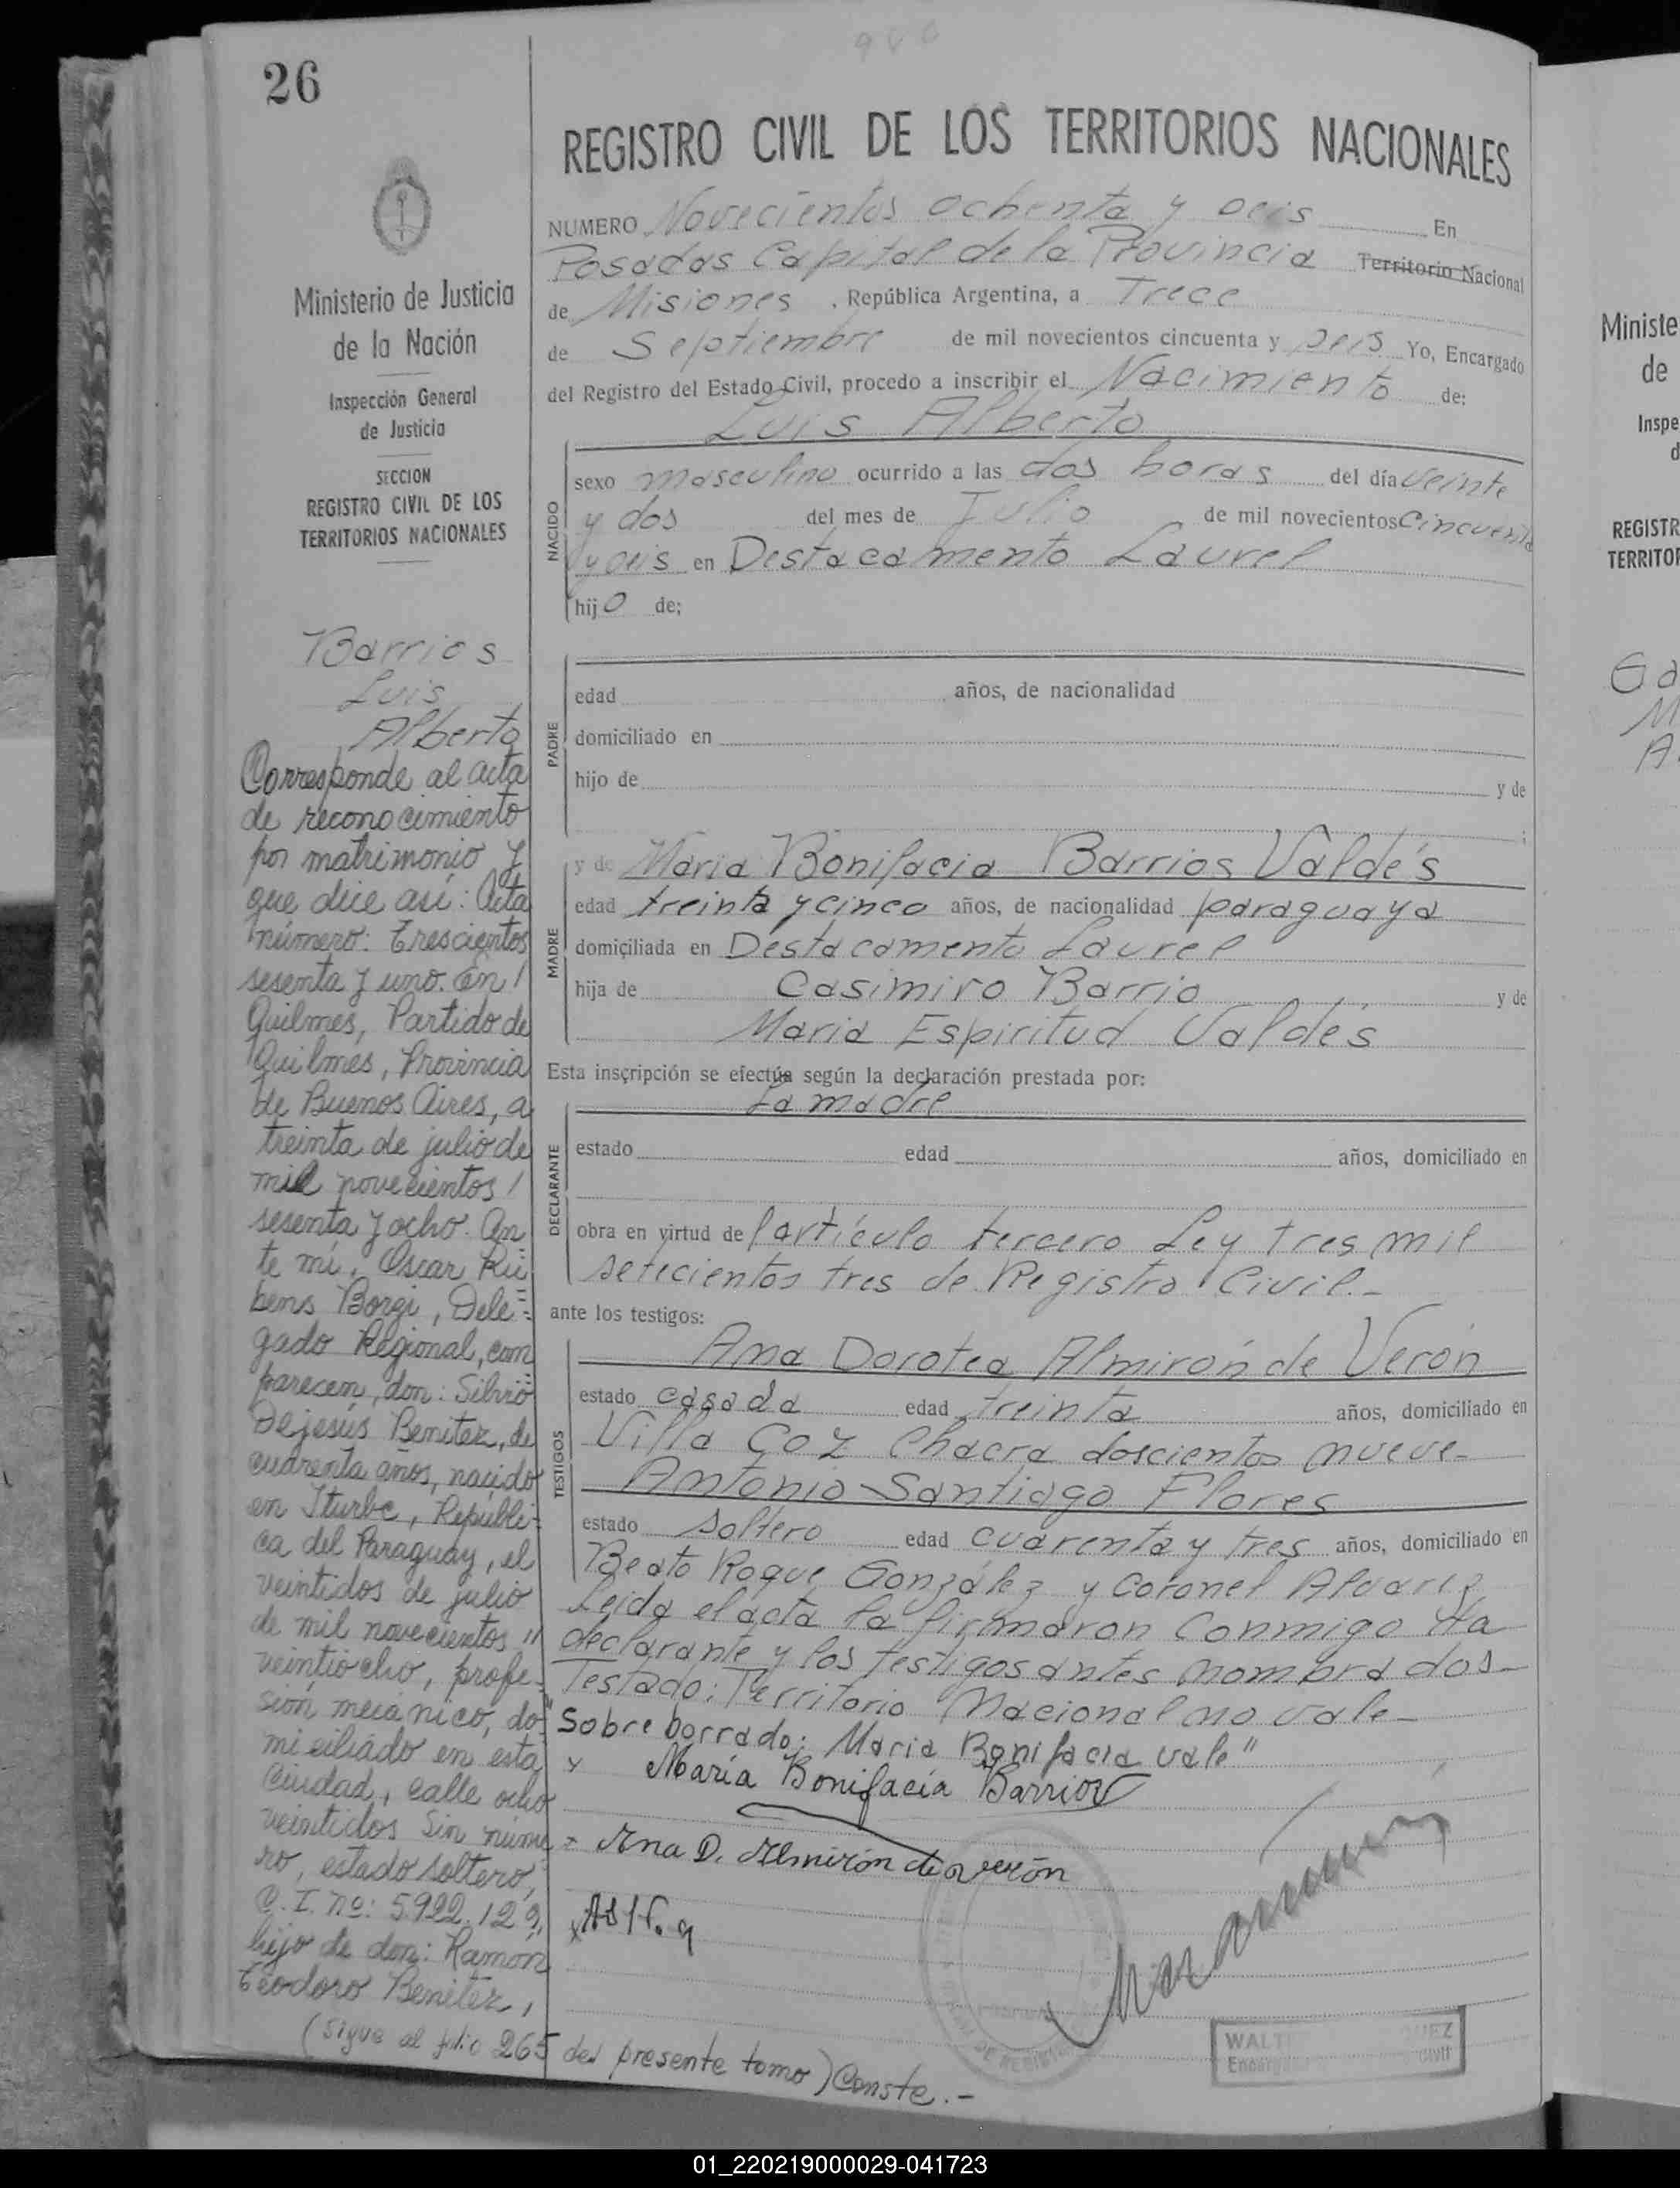 26
Ministerio de Justicia
de la Nación
Inspección General
de Justicia
SECCION
REGISTRO CIVIL DE LOS
TERRITORIOS NACIONALES
Barrios
Luis
Alberto
Corresponde al acta
de reconocimiento
por matrimonio y
que dice así: Acta
número: Trescientos
sesenta y uno. En /
Quilmes, Partido de
Quilmes, Provincia
de Buenos Aires, a
treinta de julio de
mil novecientos /
sesenta y ocho. An
te mí, Oscar Ru
bens Borgi, Dele=
gado Regional, com
parecen, don: Silvio
Dejesús Benitez, de
cuarenta años, nacido
en Iturbe, Repúbli=
ca del Paraguay, el
veintidos de julio
de mil novecientos "
veintiocho, profe=
sión mecánico, do=
miciliado en esta
Ciudad, calle ocho
veintidos sin núme
ro, estado soltero,
C. I. nº: 5.922.129,
hijo de don: Ramón
Teodoro Benitez,
(sigue al folio 265 del presente tomo) Conste.-
986
REGISTRO CIVIL DE LOS TERRITORIOS NACIONALES
NUMERO Novecientos ochenta y seis En
Posadas Capital de la Provincia Territorio Nacional
de Misiones . República Argentina, a Trece
de Septiembre de mil novecientos cincuenta y seis Yo, Encargado
del Registro del Estado Civil, procedo a inscribir el Nacimiento de:
Luis Alberto
NACIDO
sexo masculino ocurrido a las dos horas del día veinte
y dos del mes de Julio de mil novecientos cincuenta
y seis en Destacamento Laurel
hijo de;
PADRE
edad años, de nacionalidad
domiciliado en
hijo de y de
;
MADRE
y de Maria Bonifacia Barrios Valdés
edad treinta y cinco años, de nacionalidad paraguaya
domiciliada en Destacamento Laurel
hija de Casimiro Barrio y de
Maria Espiritud Valdés
Esta inscripción se efectúa según la declaración prestada por:
La madre
DECLARANTE
estado edad años, domiciliado en
obra en virtud del artículo tercero Ley tres mil
setecientos tres de Registro Civil.-
ante los testigos:
TESTIGOS
Ana Dorotea Almirón de Verón
estado casada edad treinta años, domiciliado en
Villa Coz Chacra doscientos nueve-
Antonio Santiago Flores
estado soltero edad cuarenta y tres años, domiciliado en
Beato Roque González y Coronel Alvarez
Leida el acta la firmaron conmigo la
declarante y los testigos antes nombrados-
Testado: Territorio Nacional no vale-
"Sobre borrado: Maria Bonifacia vale"
x María Bonifacia Barrios
x Ana D. Almirón de Verón
WALT
Encar
01_220219000029-041723